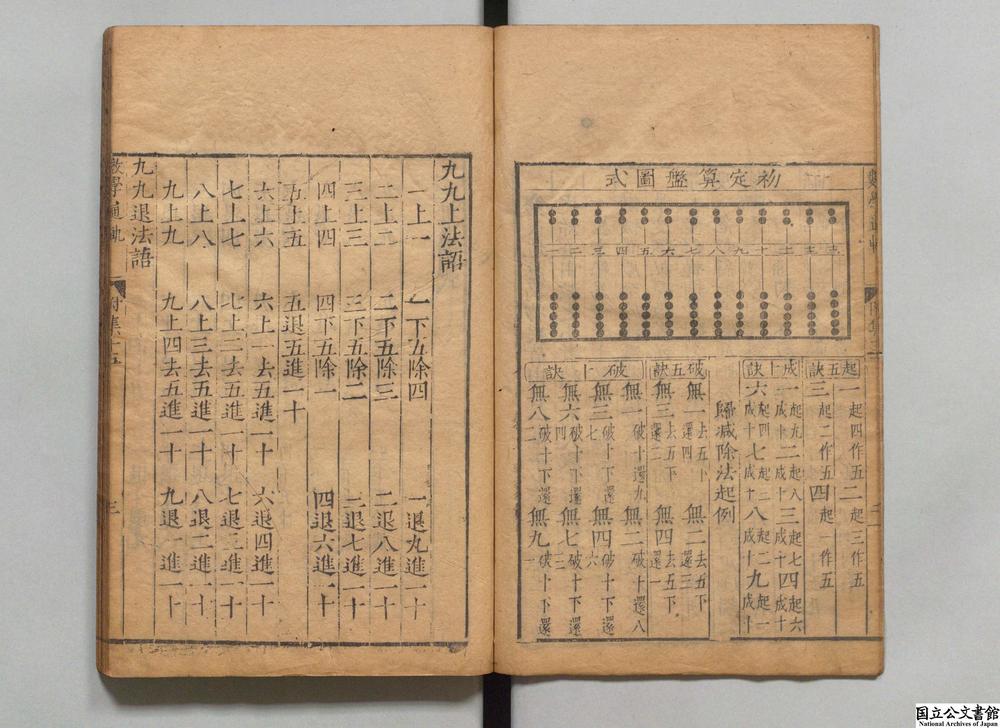 初定算盤圖式
一二三四五六七八九十
起五訣
一起四作五二起三作五
三起二作五四起一作五
成十訣
一起九成十二起八成十三起七成十四起六成十
六起四成十七起三成十八起二成十九起一成十
歸減除法起例
破五訣
無一去五下還四無二去五下還三
無三去五下還二無四去五下還一
破十訣
無一破十還九無二破十還八
無三破十下還七無四破十下還六
無六破十下還四無七破十下還三
無八破十下還二無九破十下還一
九九上法語
一上一 一下五除四 一退九進一十
二上二 二下五除三 二退八進一十
三上三 三下五除二 三退七進一十
四上四 四下五除一 四退六進一十
五上五 五退五進一十
六上六 六上一去五進一十 六退四進一十
七上七 七上二去五進一十 七退三進一十
八上八 八上三去五進一十 八退二進一十
九上九 九上四去五進一十 九退一進一十
九九退法語
數學通軌 三
国立公文書館
National Archives of Japan